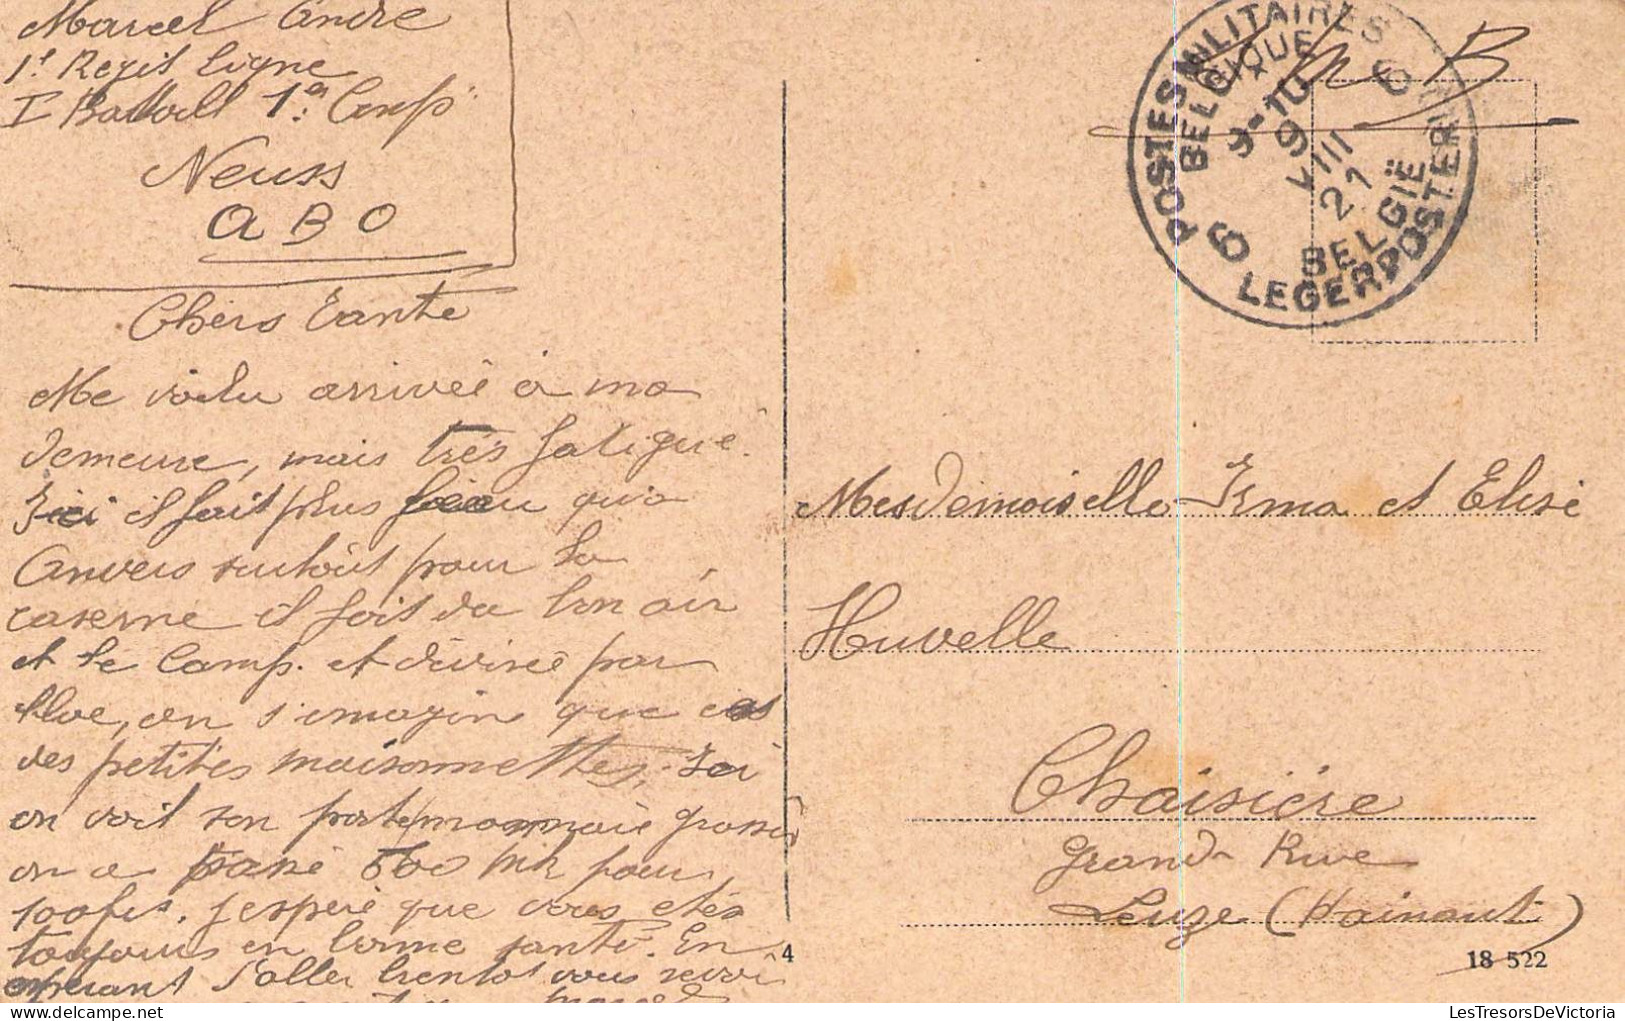 Marcel André
1er Regit ligne
I Bataill 1er Comp
Neuss
A B O
Chers Tante
Me voilu arrivée à ma
demeure, mais très fatigué.
Ici il fait plus beau qu'a
Anvers surtout pour la
caserne il fait du bon air
et le Camp. et divisée par
bloc, on s'imagine que c'est
des petites maisonnettes. Ici
on voit son porte/monnaie grossir
on a passé 500 Mk pour
100 frs. j'espère que vous etés
toujours en bonne santé. En
esperant d'aller bientot vous revoir
POSTES MILITAIRES
BELGIQUE
9-10
9
VIII
21
6 6
BELGIË
LEGERPOSTERIJ
S M B
Mesdemoiselle Irma et Elisé
Huvelle
Chaisière
Grand Rue
Leuze (Hainaut)
4
18 522
LesTresorsDeVictoria.com